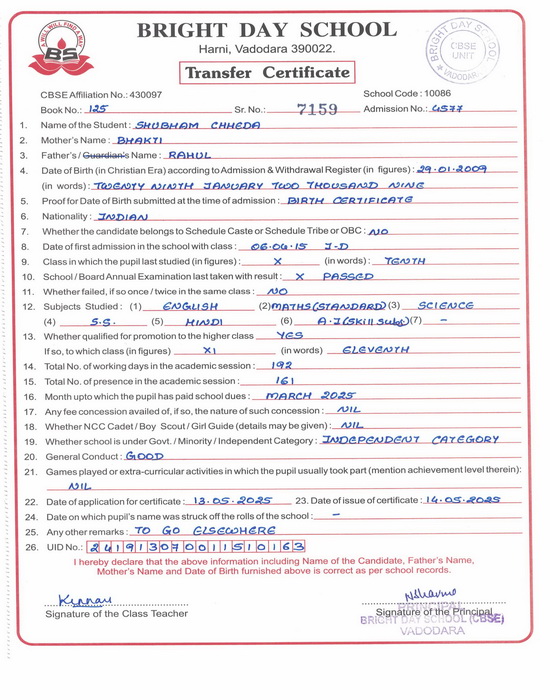 A WILL WILL FIND A WAY
BS
BRIGHT DAY SCHOOL
Harni, Vadodara 390022.
Transfer Certificate
BRIGHT DAY SCHOOL
CBSE
UNIT
VADODARA
CBSE Affiliation No.: 430097 School Code : 10086
Book No.: 125 Sr. No.: 7159 Admission No.: 4577
1. Name of the Student : SHUBHAM CHHEDA
2. Mother's Name : BHAKTI
3. Father's / Guardian's Name : RAHUL
4. Date of Birth (in Christian Era) according to Admission & Withdrawal Register (in figures) : 29.01.2009
(in words) : TWENTY NINTH JANUARY TWO THOUSAND NINE
5. Proof for Date of Birth submitted at the time of admission : BIRTH CERTIFICATE
6. Nationality : INDIAN
7. Whether the candidate belongs to Schedule Caste or Schedule Tribe or OBC : NO
8. Date of first admission in the school with class : 06.04.15 I-D
9. Class in which the pupil last studied (in figures) : X (in words) : TENTH
10. School / Board Annual Examination last taken with result : X PASSED
11. Whether failed, if so once / twice in the same class : NO
12. Subjects Studied : (1) ENGLISH (2) MATHS(STANDARD) (3) SCIENCE
(4) S.S. (5) HINDI (6) A.I (Skill Subj) (7) -
13. Whether qualified for promotion to the higher class YES
If so, to which class (in figures) XI (in words) ELEVENTH
14. Total No. of working days in the academic session : 192
15. Total No. of presence in the academic session : 161
16. Month upto which the pupil has paid school dues : MARCH 2025
17. Any fee concession availed of, if so, the nature of such concession : NIL
18. Whether NCC Cadet / Boy Scout / Girl Guide (details may be given) : NIL
19. Whether school is under Govt. / Minority / Independent Category : INDEPENDENT CATEGORY
20. General Conduct : GOOD
21. Games played or extra-curricular activities in which the pupil usually took part (mention achievement level therein) :
NIL
22. Date of application for certificate : 13.05.2025 23. Date of issue of certificate : 14.05.2025
24. Date on which pupil's name was struck off the rolls of the school : -
25. Any other remarks : TO GO ELSEWHERE
26. UID No.: 241913070011510163
I hereby declare that the above information including Name of the Candidate, Father's Name,
Mother's Name and Date of Birth furnished above is correct as per school records.
Signature of the Class Teacher Signature of the Principal
PRINCIPAL
BRIGHT DAY SCHOOL (CBSE)
VADODARA